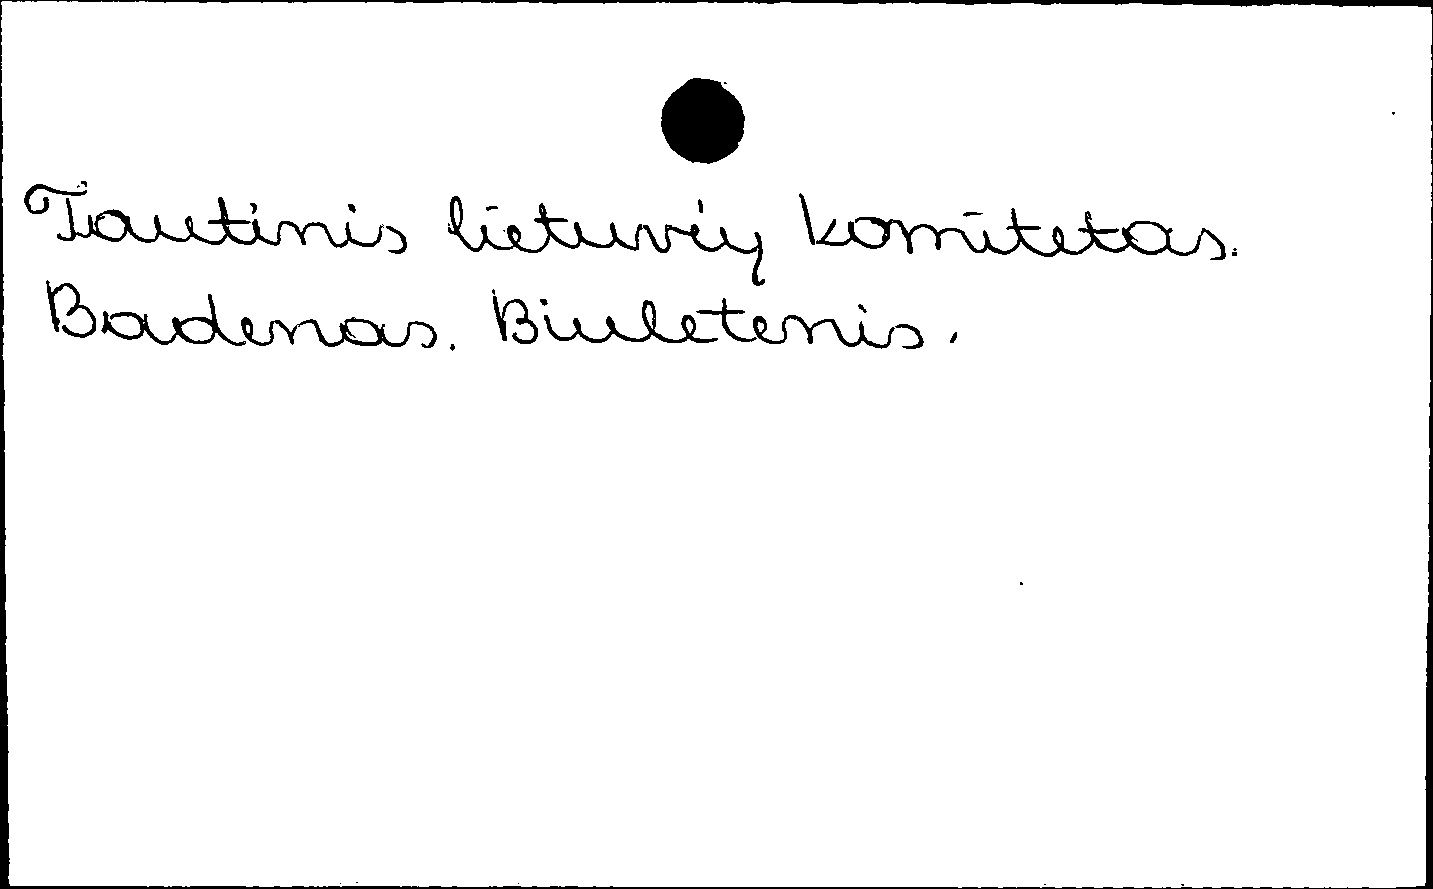 Tautinis lietuvių komitetas.
Badenas. Biuletenis.